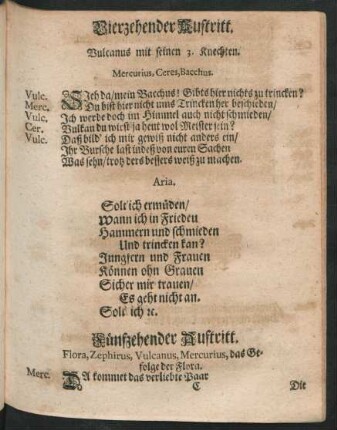 Vierzehender Auftritt.
Vulcanus mit seinen 3. Knechten.
Mercurius, Ceres, Bacchus.
Vulc. Sieh da/ mein Bacchus! Gibts hier nichts zu trincken?
Merc. Du bist hier nicht ums Trincken her beschieden/
Vulc. Ich werde doch im Himmel auch nicht schmieden/
Cer. Vulkan du wirst ja heut wol Meister sein?
Vulc. Daß bild' ich mir gewiß nicht anders ein/
Ihr Bursche last indeß von euren Sachen
Was sehn/ trotz ders bessers weiß zu machen.
Aria.
Solt ich ermüden/
Wann ich in Frieden
Hammern und schmieden
Und trincken kan?
Jungfern und Frauen
Können ohn Grauen
Sicher mir trauen/
Es geht nicht an.
Solt ich ꝛc.
Fünfzehender Auftritt.
Flora, Zephirus, Vulcanus, Mercurius, das Ge-
folge der Flora.
Merc. DA kommet das verliebte Paar
C Die